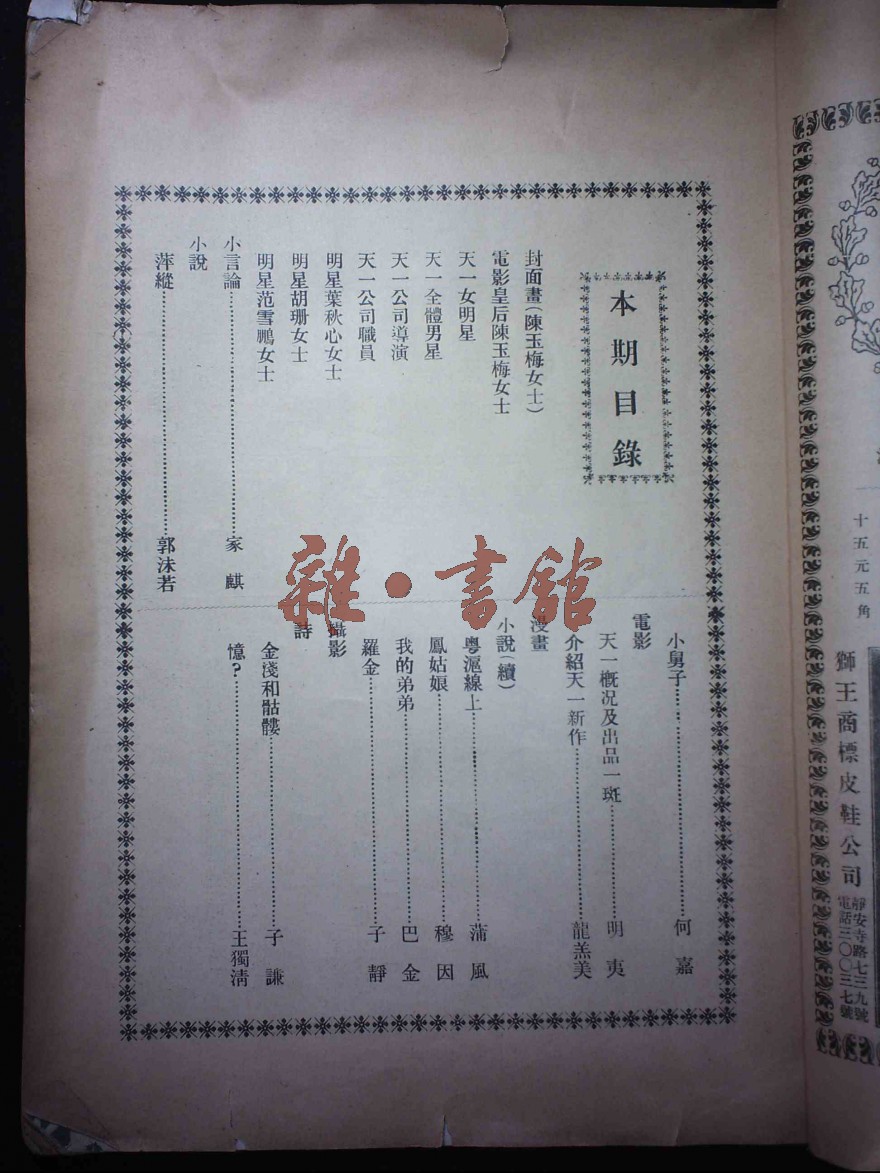 本期目錄
封面畫(陳玉梅女士)
電影皇后陳玉梅女士
天一女明星
天一全體男星
天一公司導演
天一公司職員
明星葉秋心女士
明星胡珊女士
明星范雪鵬女士
小言論……家麒
小說
萍縱……郭沫若
小舅子……何嘉
電影
天一概況及出品一斑……明夷
介紹天一新作……龍羔美
漫畫
小說(續)
粵滬線上……蒲風
鳳姑娘……穆因
我的弟弟……巴金
羅金……子靜
攝影
詩
金淺和骷髏……子謙
憶?……王獨清
雜·書館
十五元五角
獅王商標皮鞋公司
靜安寺路七三九號
電話三〇〇三七號